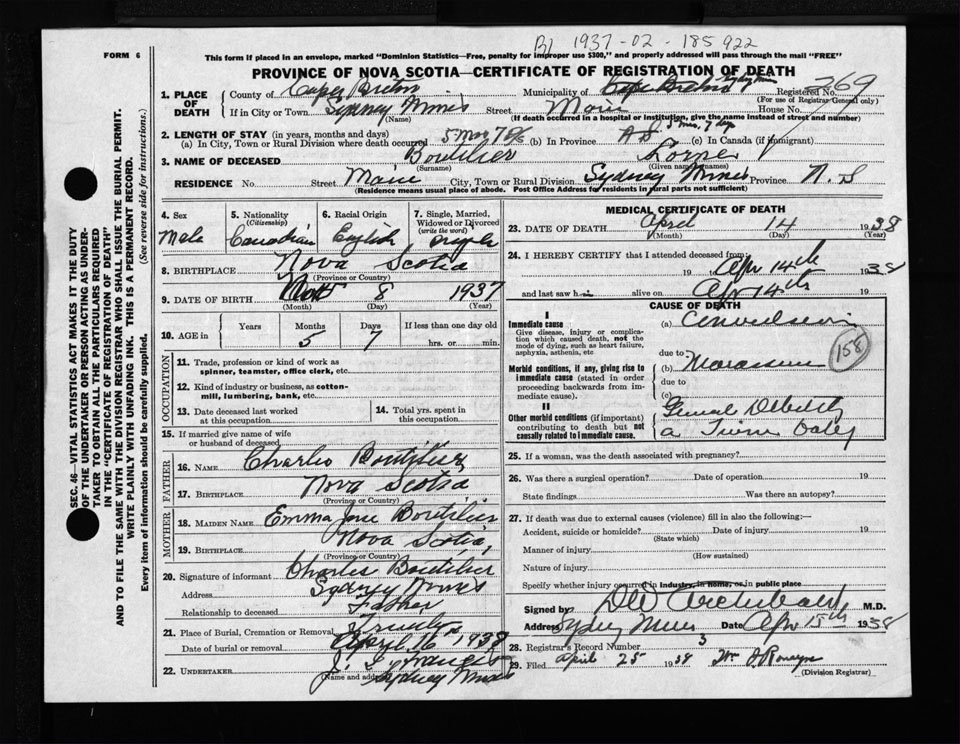 B1 1937-02-185922
FORM 6
This form if placed in an envelope, marked "Dominion Statistics—Free, penalty for improper use $300," and properly addressed will pass through the mail "FREE"
PROVINCE OF NOVA SCOTIA—CERTIFICATE OF REGISTRATION OF DEATH
1. PLACE OF DEATH County of Cape Breton Municipality of Cape Breton Registered No. 769
(For use of Registrar General only)
If in City or Town Sydney Mines Street Main House No.
(Name) (If death occurred in a hospital or institution, give the name instead of street and number)
2. LENGTH OF STAY (in years, months and days)
(a) In City, Town or Rural Division where death occurred 5 mos 7 ds (b) In Province 5 mos, 7 days (c) In Canada (if immigrant)
3. NAME OF DECEASED Boutilier
(Surname) (Given name or names)
RESIDENCE No. Street Main City, Town or Rural Division Sydney Mines Province N.S
(Residence means usual place of abode. Post Office Address for residents in rural parts not sufficient)
4. Sex Male
5. Nationality (Citizenship) Canadian
6. Racial Origin English
7. Single, Married, Widowed or Divorced (write the word) Single
8. BIRTHPLACE Nova Scotia
(Province or Country)
9. DATE OF BIRTH 8 1937
(Month) (Day) (Year)
10. AGE in Years Months 5 Days 7 If less than one day old hrs. or min.
OCCUPATION
11. Trade, profession or kind of work as spinner, teamster, office clerk, etc.
12. Kind of industry or business, as cotton-mill, lumbering, bank, etc.
13. Date deceased last worked at this occupation
14. Total yrs. spent in this occupation
15. If married give name of wife or husband of deceased
FATHER
16. NAME Charles Boutilier
17. BIRTHPLACE Nova Scotia
(Province or Country)
MOTHER
18. MAIDEN NAME Emma Jane Boutilier
19. BIRTHPLACE Nova Scotia
(Province or Country)
20. Signature of informant Charles Boutilier
Address Sydney Mines
Relationship to deceased Father
21. Place of Burial, Cremation or Removal Trinity
Date of burial or removal April 16th 1938
22. UNDERTAKER
(Name and address) Sydney Mines
MEDICAL CERTIFICATE OF DEATH
23. DATE OF DEATH April 14 1938
(Month) (Day) (Year)
24. I HEREBY CERTIFY that I attended deceased from
19 to Apr 14th 1938
and last saw him alive on Apr 14th 1938
CAUSE OF DEATH
I
Immediate cause (a) Convulsions
Give disease, injury or complication which caused death, not the mode of dying, such as heart failure, asphyxia, asthenia, etc
due to
Morbid conditions, if any, giving rise to immediate cause (stated in order proceeding backwards from immediate cause). (b) Marasmus
158
due to
(c)
II
Other morbid conditions (if important) contributing to death but not causally related to immediate cause. General Debility
a Twin baby
25. If a woman, was the death associated with pregnancy?
26. Was there a surgical operation? Date of operation 19
State findings Was there an autopsy?
27. If death was due to external causes (violence) fill in also the following:—
Accident, suicide or homicide? Date of injury 19
(State which)
Manner of injury
(How sustained)
Nature of injury
Specify whether injury occurred in industry, in home, or in public place
Signed by D W Archibald M.D.
Address Sydney Mines Date Apr 15th 1938
28. Registrar's Record Number 3
29. Filed April 25 1938
(Division Registrar)
SEC. 46—VITAL STATISTICS ACT MAKES IT THE DUTY OF THE UNDERTAKER OR PERSON ACTING AS UNDERTAKER TO OBTAIN ALL THE PARTICULARS REQUIRED IN THE "CERTIFICATE OF REGISTRATION OF DEATH" AND TO FILE THE SAME WITH THE DIVISION REGISTRAR WHO SHALL ISSUE THE BURIAL PERMIT.
WRITE PLAINLY WITH UNFADING INK. THIS IS A PERMANENT RECORD.
Every item of information should be carefully supplied. (See reverse side for instructions.)